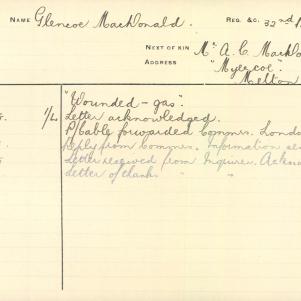 NAME Glencoe MacDonald. REG. &C. 32nd
NEXT OF KIN Mr A. C. MacDo
ADDRESS "Myercoe"
Melton
"Wounded - gas".
1/- Letter acknowledged.
P/Cable forwarded Commrs. Londo
Reply from Commrs. Information se
Letter received from Inquirer. Ackno
Letter of thanks " "